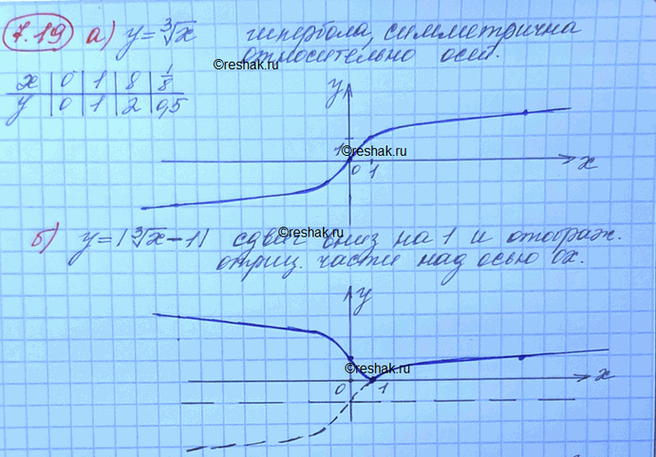 7.19 а) y = ∛x гипербола, симметрична
относительно осей.
©reshak.ru
x | 0 | 1 | 8 | 1/8
y | 0 | 1 | 2 | 0,5
y
1
©reshak.ru
0 1 x
б) y = |∛x - 1| сдвиг вниз на 1 и отображ.
©reshak.ru
отриц. части над осью Ox.
y
©reshak.ru
0 1 x